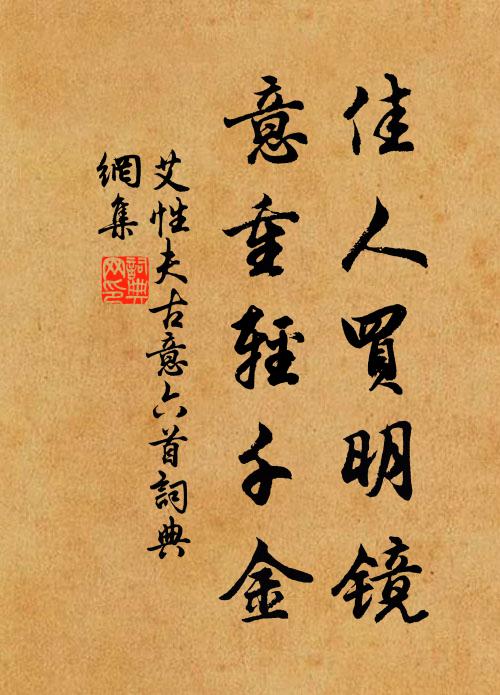 佳人買明鏡
意重輕千金
艾性夫古意六首詞典
網集
詞典網印